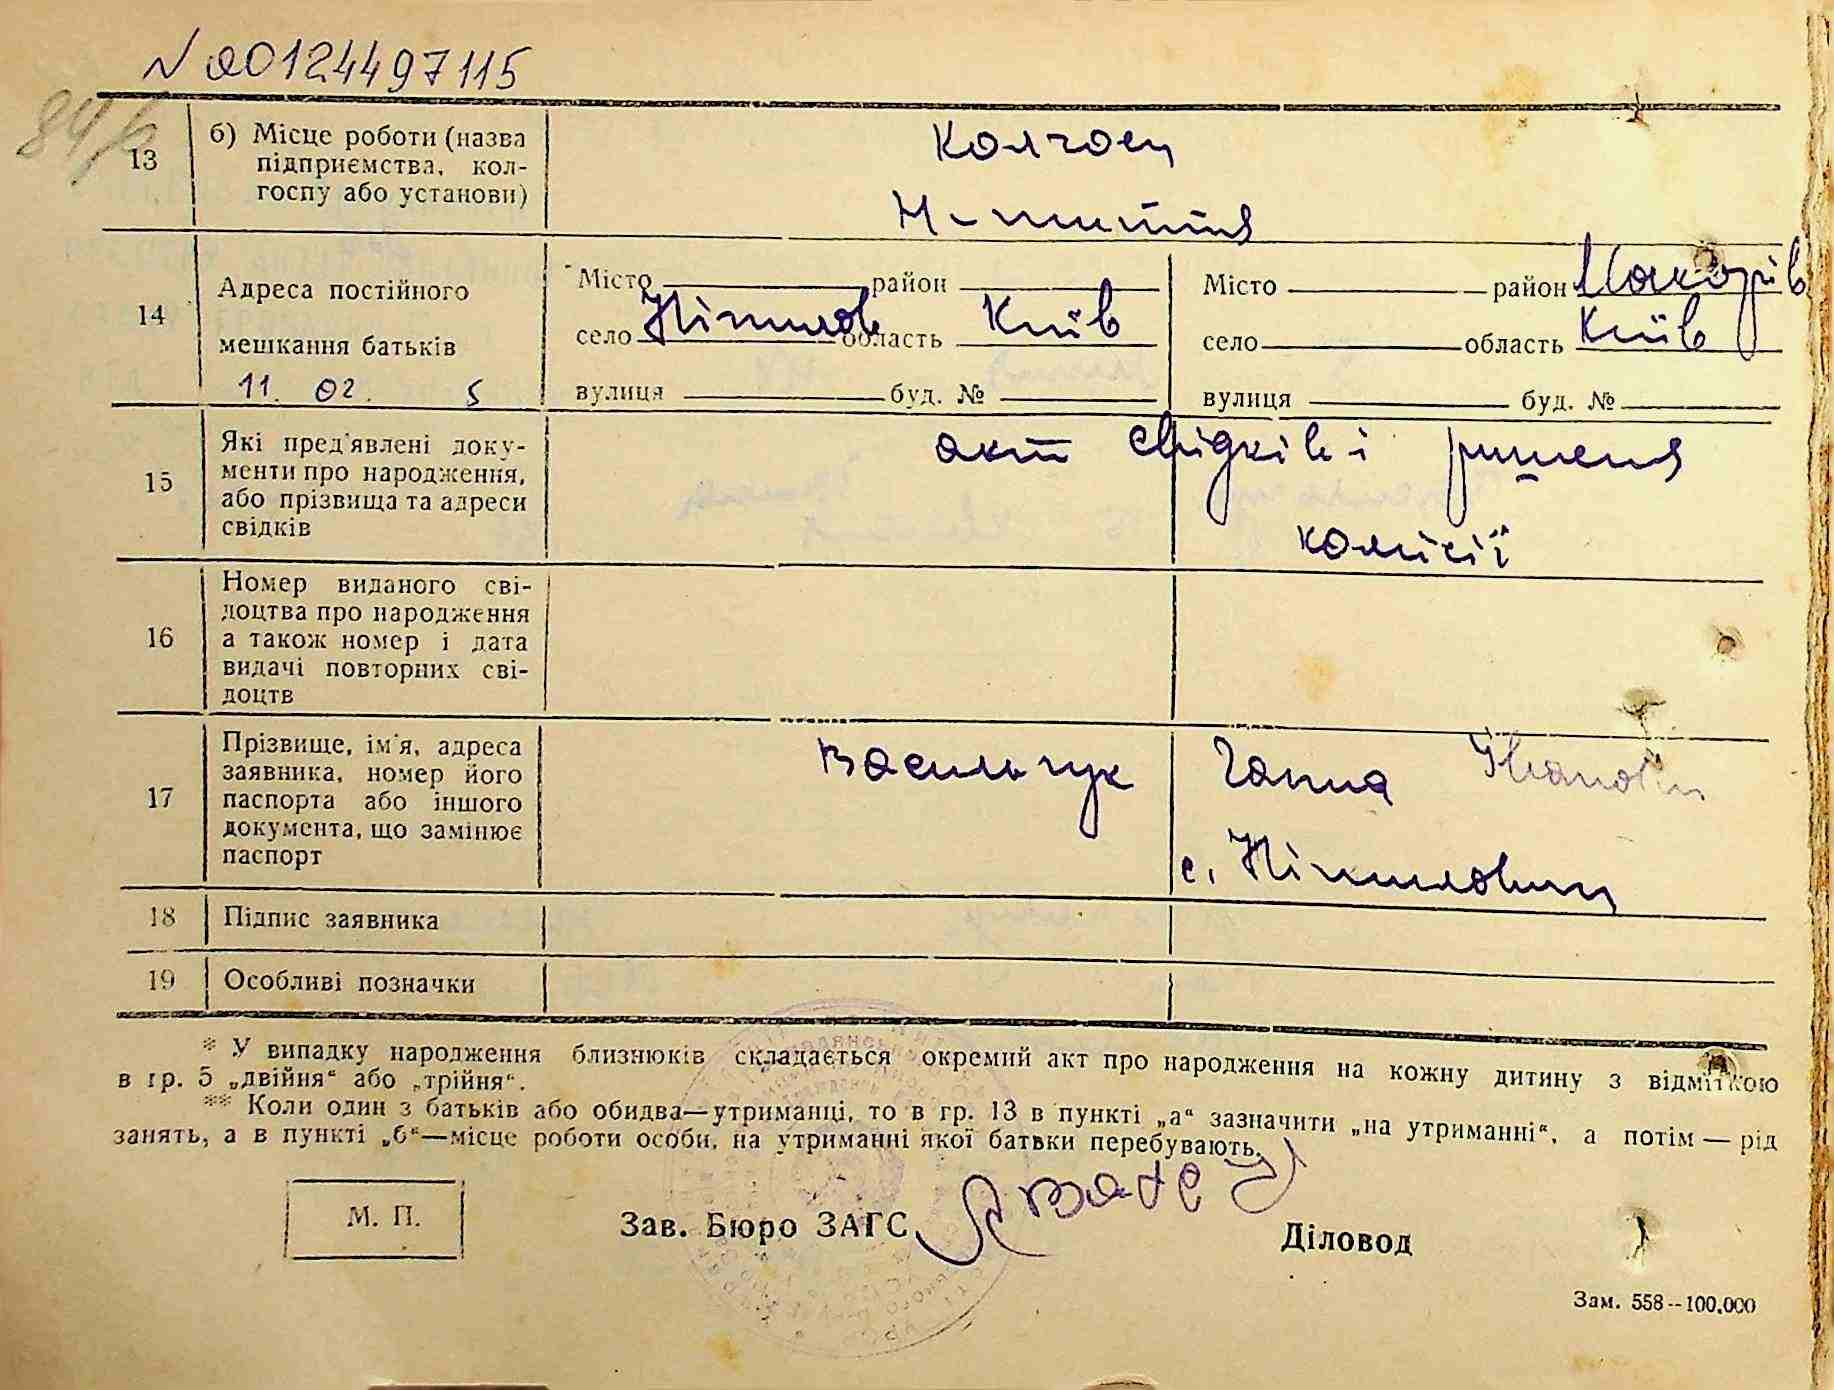 № 00124497115
84/р
13
б) Місце роботи (назва
підприємства, кол-
госпу або установи)
Колгосп
Н-життя
14
Адреса постійного
мешкання батьків
11. 02. 5
Місто район
село Ніжилов область Київ
вулиця буд. №
Місто район Макарів
село область Київ
вулиця буд. №
15
Які пред'явлені доку-
менти про народження,
або прізвища та адреси
свідків
акт свідків і ришеня
комісії
16
Номер виданого сві-
доцтва про народження
а також номер і дата
видачі повторних сві-
доцтв
17
Прізвище, ім'я, адреса
заявника, номер його
паспорта або іншого
документа, що замінює
паспорт
Васильчук Ганна Іванівн
с.
18
Підпис заявника
19
Особливі позначки
* У випадку народження близнюків складається окремий акт про народження на кожну дитину з відміткою
в гр. 5 „двійня“ або „трійня“.
** Коли один з батьків або обидва—утриманці, то в гр. 13 в пункті „а“ зазначити „на утриманні“, а потім — рід
занять, а в пункті „б“—місце роботи особи, на утриманні якої батвки перебувають.
М. П.
Зав. Бюро ЗАГС
Діловод
Зам. 558--100.000